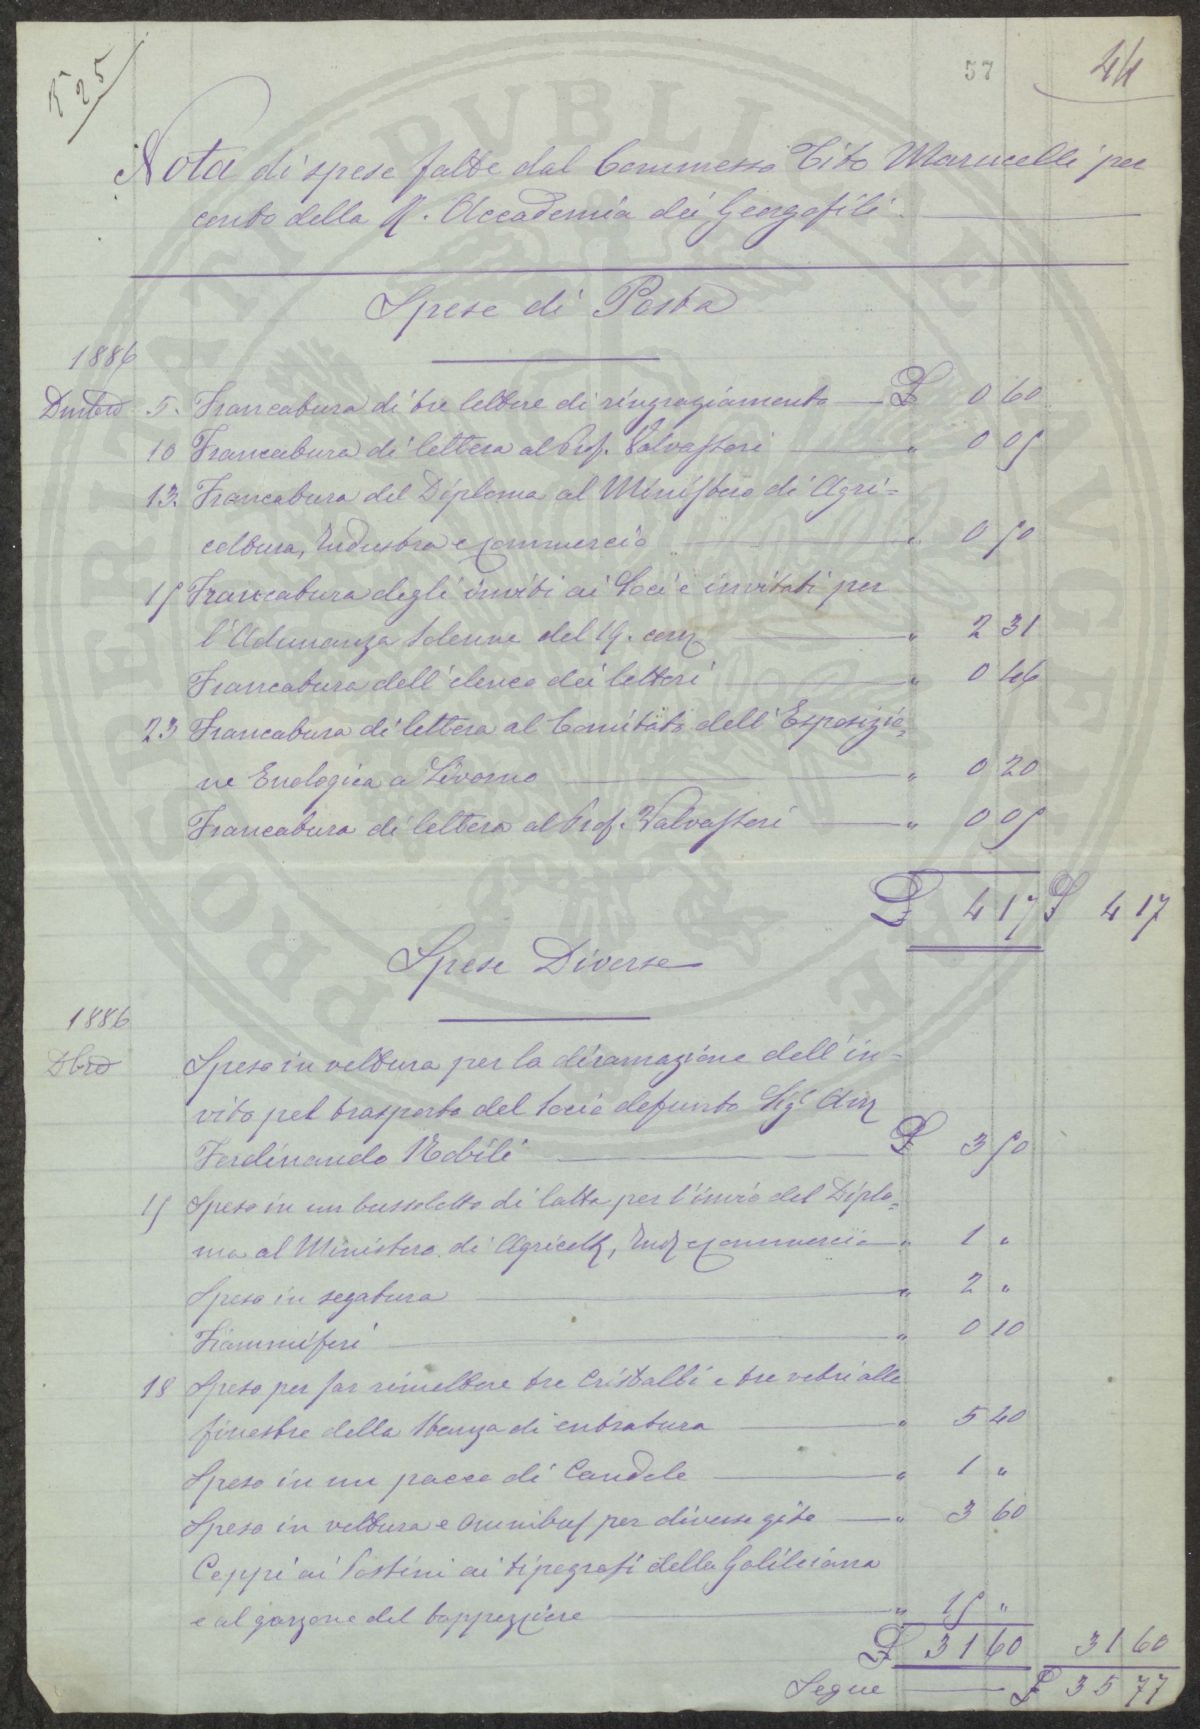 525
57
44
Nota di spese fatte dal Commesso Tito Marucelli per
conto della R. Accademia dei Georgofili
Spese di Posta
1886
Dmbre 5. Francatura di tre lettere di ringraziamento £ 0 60
10 Francatura di lettera al Prof. Valvassori " 0 05
13. Francatura del Diploma al Ministero di Agri=
coltura, Industra e Commercio " 0 50
15 Francatura degli inviti ai Soci e invitati per
l'Adunanza Solenne del 19. corr " 2 31
Francatura dell'elenco dei lettori " 0 46
23 Francatura di lettera al Comitato dell'Esposizio=
ne Enologica a Livorno " 0 20
Francatura di lettera al Prof. Valvassori " 0 05
£ 4 17 £ 4 17
Spese Diverse
1886
Dbre Spesa in vettura per la diramazione dell'in=
vito pel trasporto del Socio defunto Sigr
Ferdinando Nobili £ 3 50
15 Spesa in un bussolotto di latta per l'invio del Diplo=
ma al Ministero di Agricolt, Ind e Commercio " 1 "
Spesa in segatura " 2 "
Fiammiferi " 0 10
18 Spesa per far rimettere tre Cristalli e tre vetri alle
finestre della Stanza di entratura " 5 40
Spesa in un pacco di Candele " 1 "
Spesa in vettura e omnibus per diverse gite " 3 60
Ceppi ai Postini ai tipografi della Galileiana
e al garzone del tappezziere " 15 "
£ 31 60 31 60
Segue £ 35 77
PROSPERITATI PVBLICAE AVGENDAE